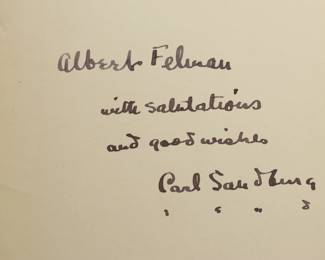 Albert Felman
with salutations
and good wishes
Carl Sandburg